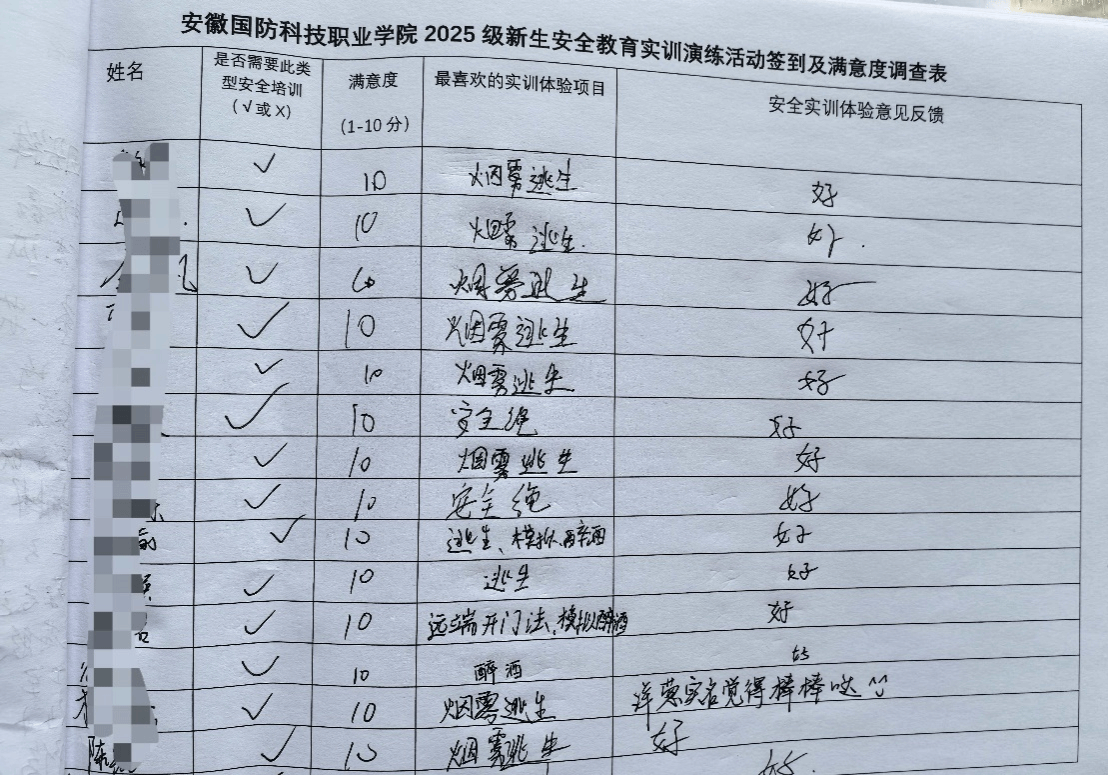 安徽国防科技职业学院 2025 级新生安全教育实训演练活动签到及满意度调查表
姓名 是否需要此类型安全培训（√或X） 满意度（1-10 分） 最喜欢的实训体验项目 安全实训体验意见反馈
√ 10 烟雾逃生 好
√ 10 烟雾逃生. 好.
√ 烟雾逃生 好
√ 10 烟雾逃生 好
√ 10 烟雾逃生 好
√ 10 安全绳 好
√ 10 烟雾逃生 好
√ 10 安全绳 好
√ 10 逃生、模拟醉酒 好
√ 10 逃生 好
√ 10 远端开门法、模拟醉酒 好
√ 10 醉酒 好
√ 10 烟雾逃生 实名觉得棒棒哒
陈 √ 10 烟雾逃生 好
好.